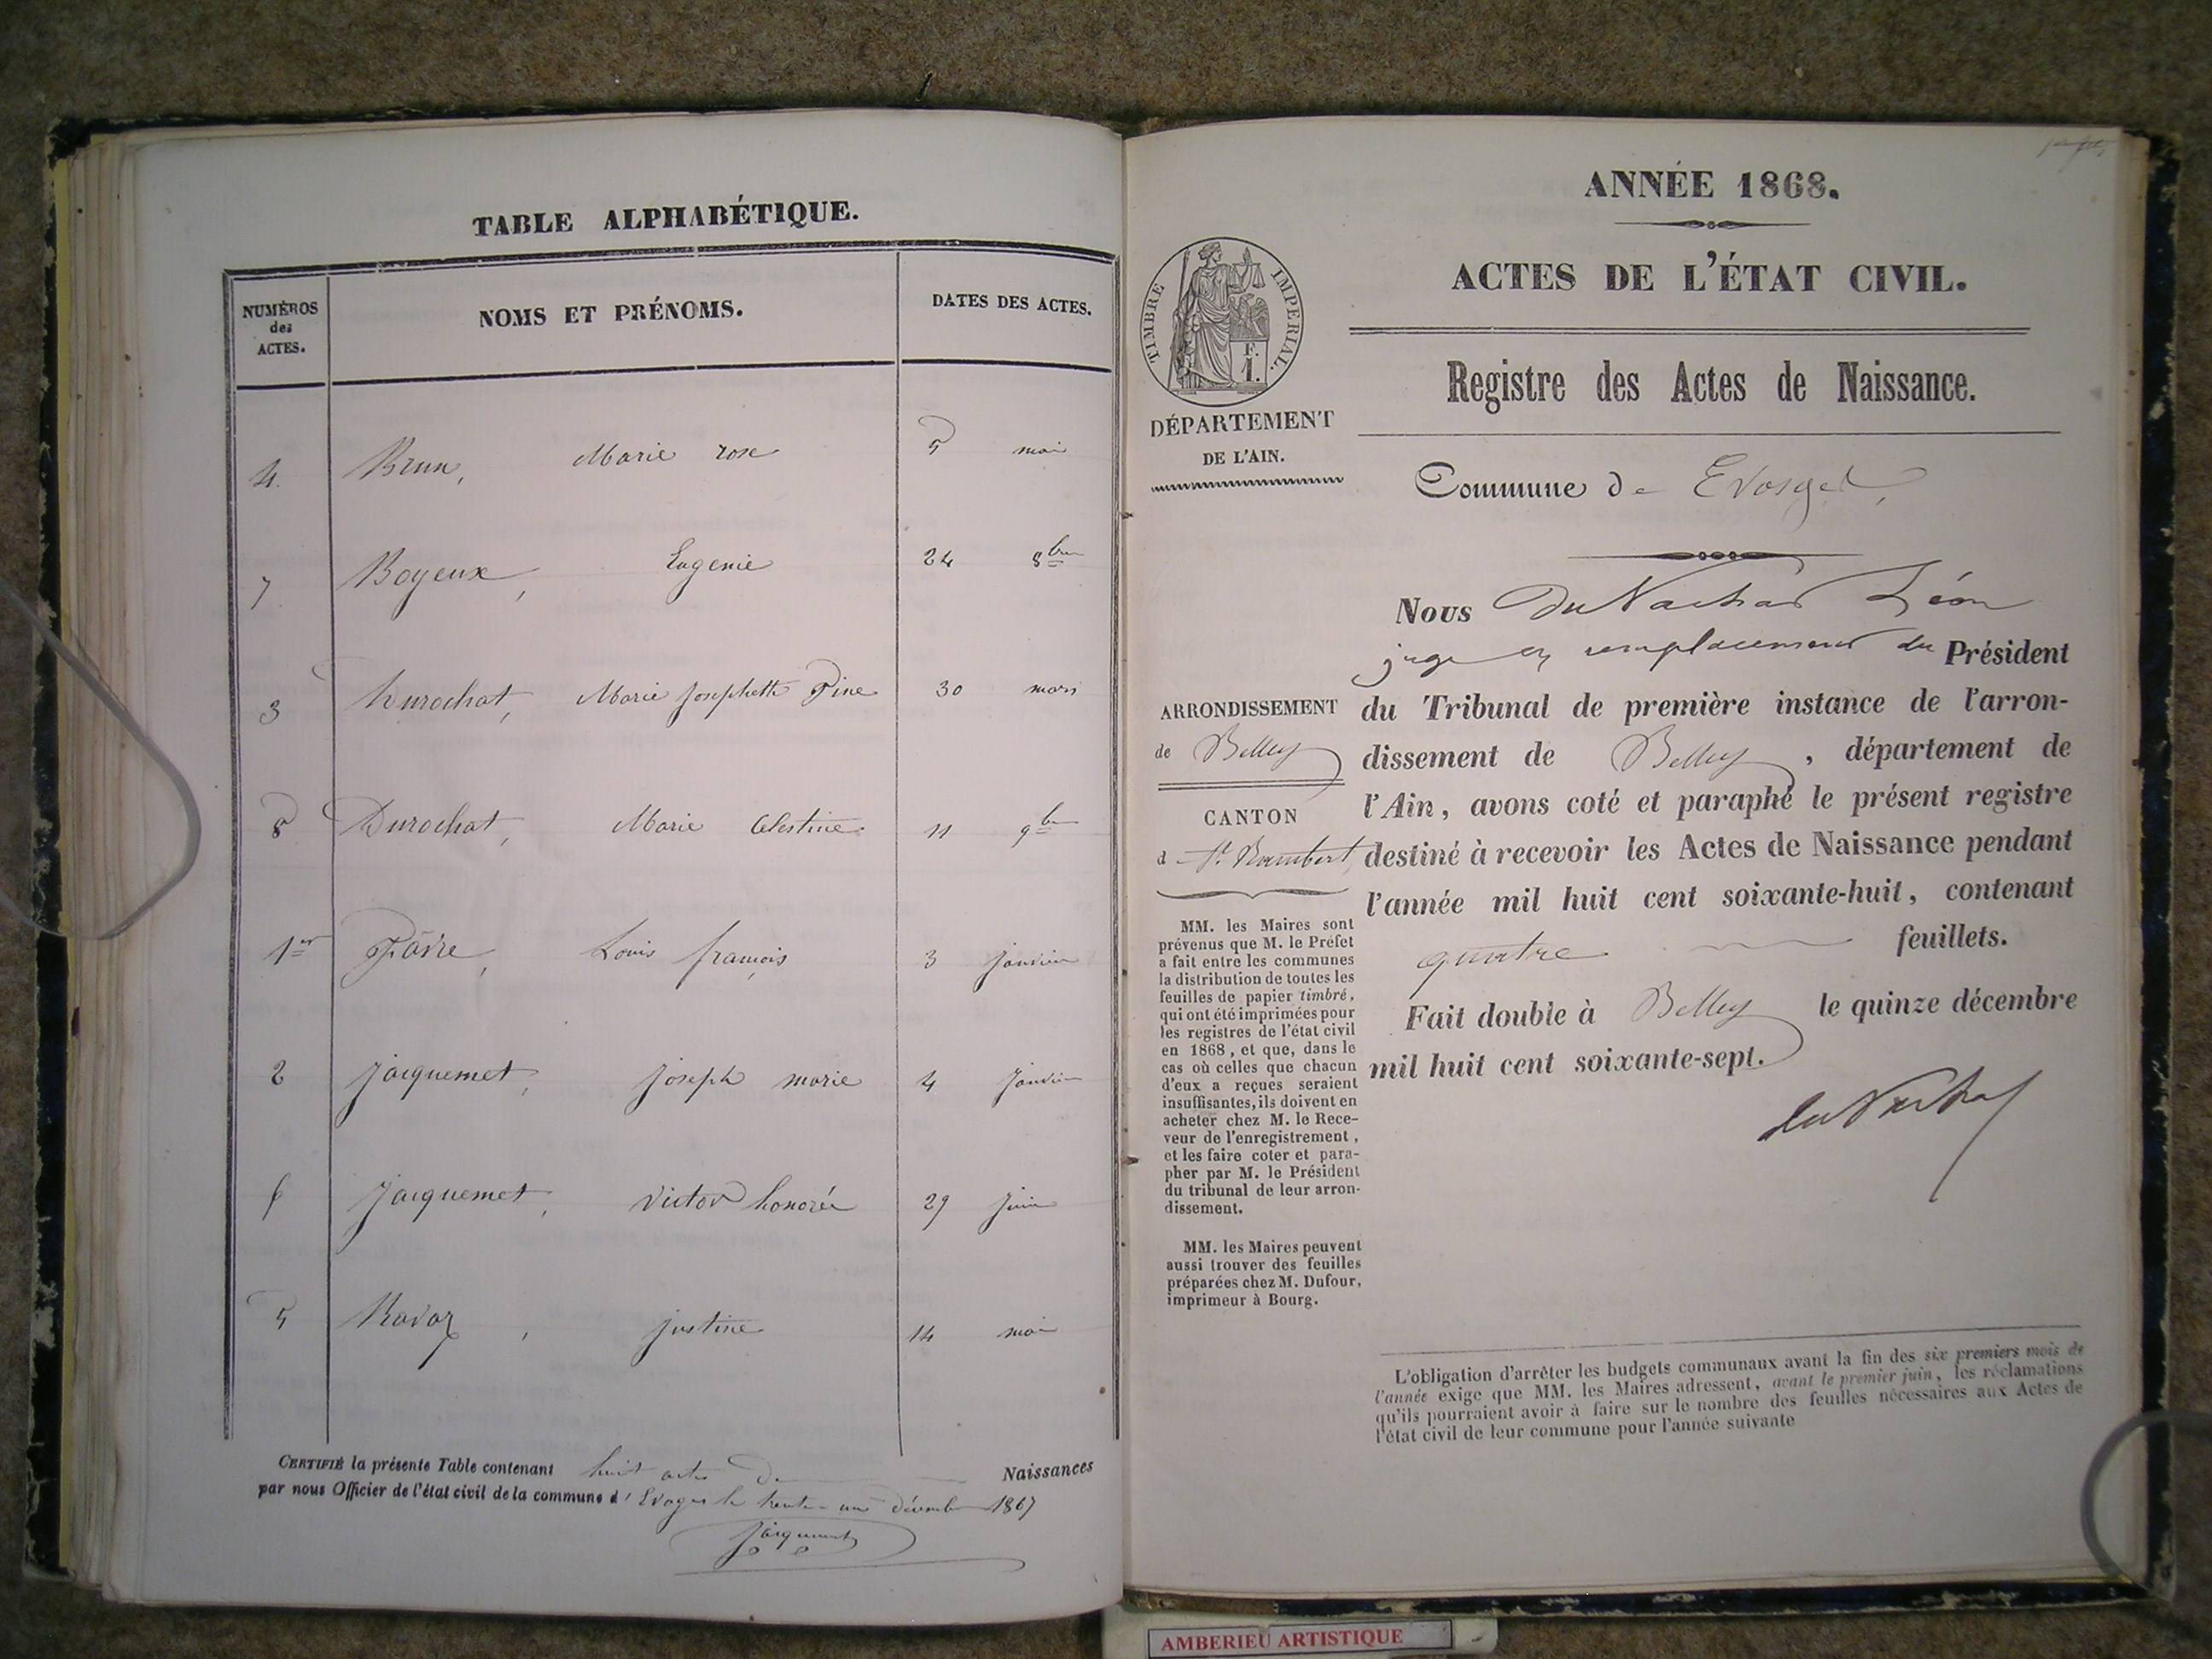 TABLE ALPHABÉTIQUE.
NUMÉROS des ACTES. NOMS ET PRÉNOMS. DATES DES ACTES.
4 Brun, Marie rose 5 mai
7 Boyeux, Eugenie 24 8bre
3 Durochat, Marie Josephette Pine 30 mars
8 Durochat, Marie Célestine 11 9bre
1er Favre, Louis françois 3 Janvier
2 Jacquemet, Joseph marie 4 Janvier
6 Jacquemet, Victor honorée 29 Juin
5 Ravaz, justine 14 mai
CERTIFIÉ la présente Table contenant huit actes De Naissances
par nous Officier de l'état civil de la commune d' Evoges le trente-un décembre 1867
Jacquemet
ANNÉE 1868.
ACTES DE L'ÉTAT CIVIL.
TIMBRE IMPERIAL.
F.
1.
Registre des Actes de Naissance.
DÉPARTEMENT
DE L'AIN.
Commune de Evosges,
Nous du Nachat Léon
juge en remplacement du Président
du Tribunal de première instance de l'arron-
dissement de Belley, département de
l'Ain, avons coté et paraphé le présent registre
destiné à recevoir les Actes de Naissance pendant
l'année mil huit cent soixante-huit, contenant
quatre feuillets.
Fait double à Belley le quinze décembre
mil huit cent soixante-sept.
ARRONDISSEMENT
de Belley
CANTON
d St Rambert,
MM. les Maires sont
prévenus que M. le Préfet
a fait entre les communes
la distribution de toutes les
feuilles de papier timbré,
qui ont été imprimées pour
les registres de l'état civil
en 1868, et que, dans le
cas où celles que chacun
d'eux a reçues seraient
insuffisantes, ils doivent en
acheter chez M. le Rece-
veur de l'enregistrement,
et les faire coter et para-
pher par M. le Président
du tribunal de leur arron-
dissement.
MM. les Maires peuvent
aussi trouver des feuilles
préparées chez M. Dufour,
imprimeur à Bourg.
du Nachat
L'obligation d'arrêter les budgets communaux avant la fin des six premiers mois de
l'année exige que MM. les Maires adressent, avant le premier juin, les réclamations
qu'ils pourraient avoir à faire sur le nombre des feuilles nécessaires aux Actes de
l'état civil de leur commune pour l'année suivante
AMBERIEU ARTISTIQUE